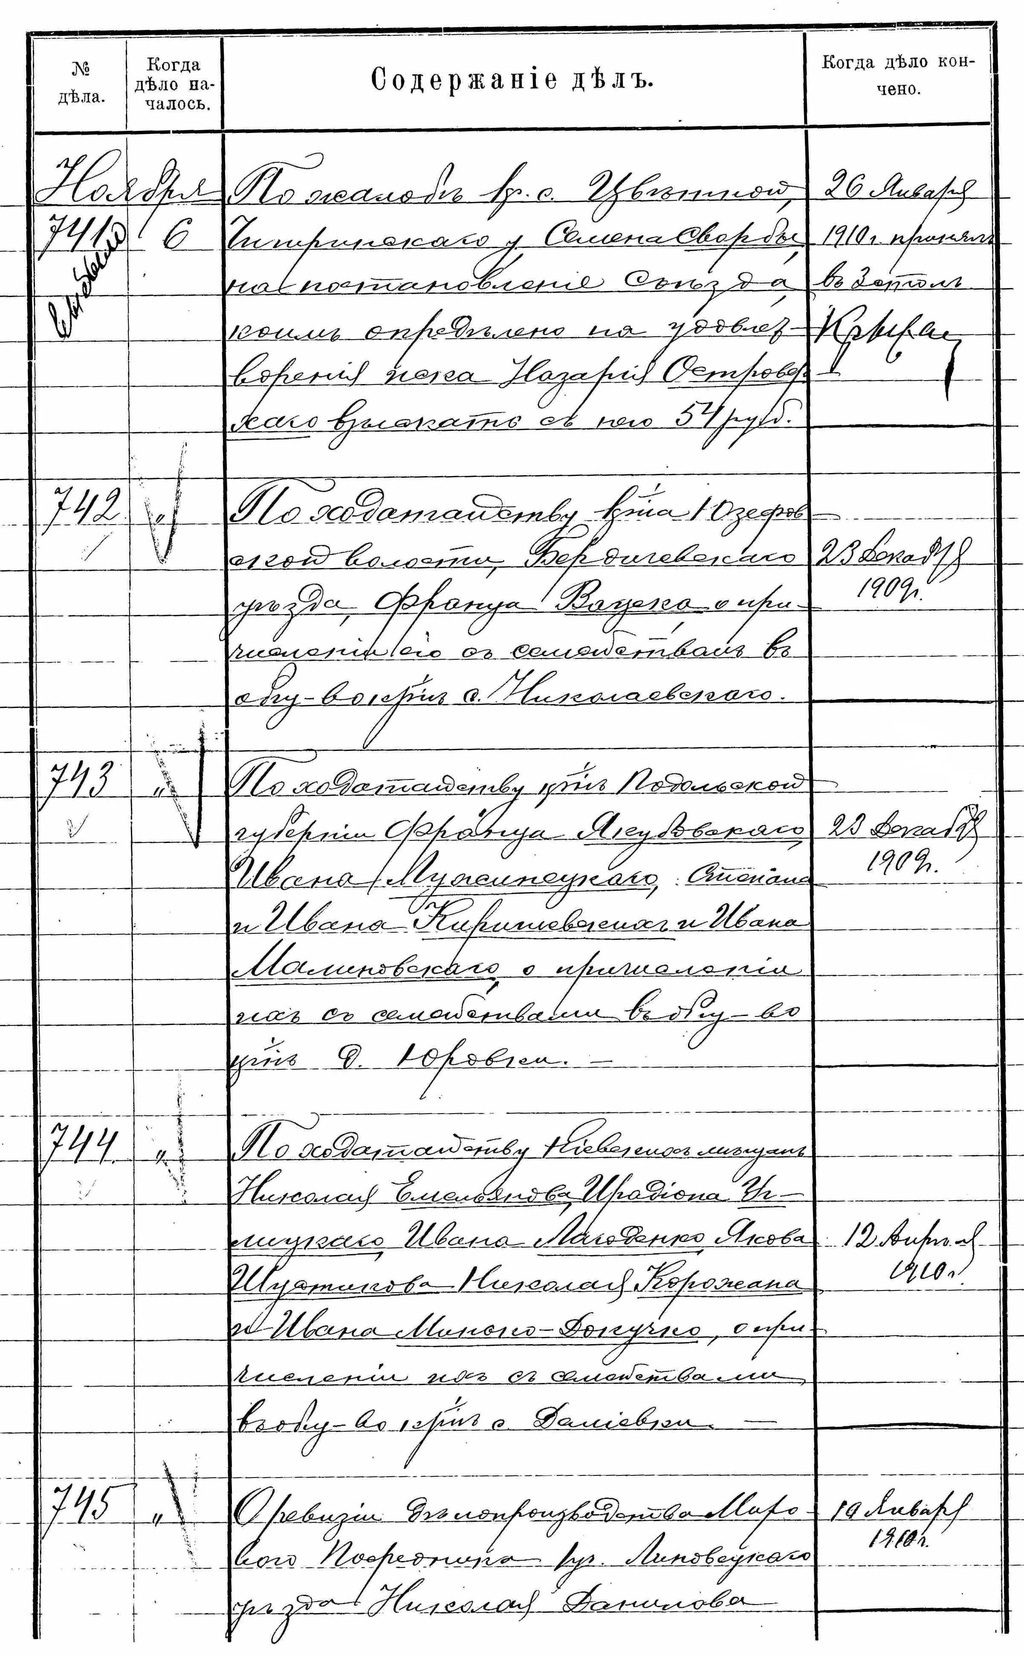 № дѣла.
Когда дѣло началось.
Содержаніе дѣлъ.
Когда дѣло кончено.
Ноября
741 6 По жалобѣ кр. с. Цвѣтной,
Чигиринскаго у. Семена Сворбы,
на постановленіе Съѣзда,
коимъ опредѣлено на удовлет-
воренія иска Назарія Островер
хаго взыскать съ него 54 руб.
26 Января
1910 г. принялъ
742 " По ходатайству кр-на Юзефов
ской волости, Бердичевскаго
уѣзда, Франца Вацека, о при-
численіи его съ семействамъ въ
общ-во кр-нъ с. Николаевскаго.
23 Декабря
1909 г.
743 " По ходатайству кр-нъ Подольской
губерніи Франца Якубовскаго,
Ивана Мужинецкаго, Степана
и Ивана Киришевскихъ и Ивана
Малиновскаго, о причисленіи
ихъ съ семействами въ общ-во
кр-нъ д. Юровки. —
23 Декабря
1909 г.
744. " По ходатайству Кіевскихъ мѣщанъ
Николая Емельянова, Иродіона
Ивана Лагоденко, Якова
Шустикова Николая Корожана
и Ивана Минско-Докучко, о при-
численіи ихъ съ семействами
въ общ-во кр-нъ с. Даніевки. —
12 Апрѣля
1910 г.
745 " О ревизіи дѣлопроизводства Миро-
вого Посредника уч. Липовецкаго
уѣзда Николая Данилова
19 Января
1910 г.